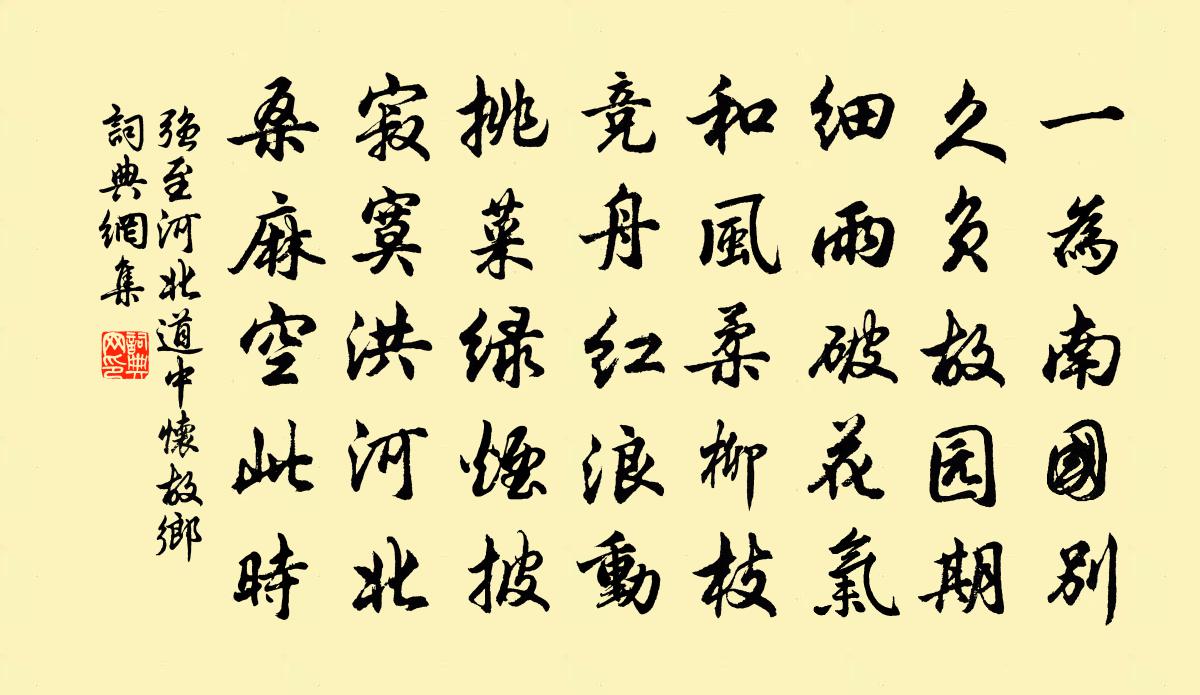 一為南國別
久負故园期
細雨破花氣
和風柔柳枝
競舟紅浪動
挑菜綠煙披
寂寞洪河北
桑麻空此時
強至河北道中懷故鄉
詞典網集
詞典